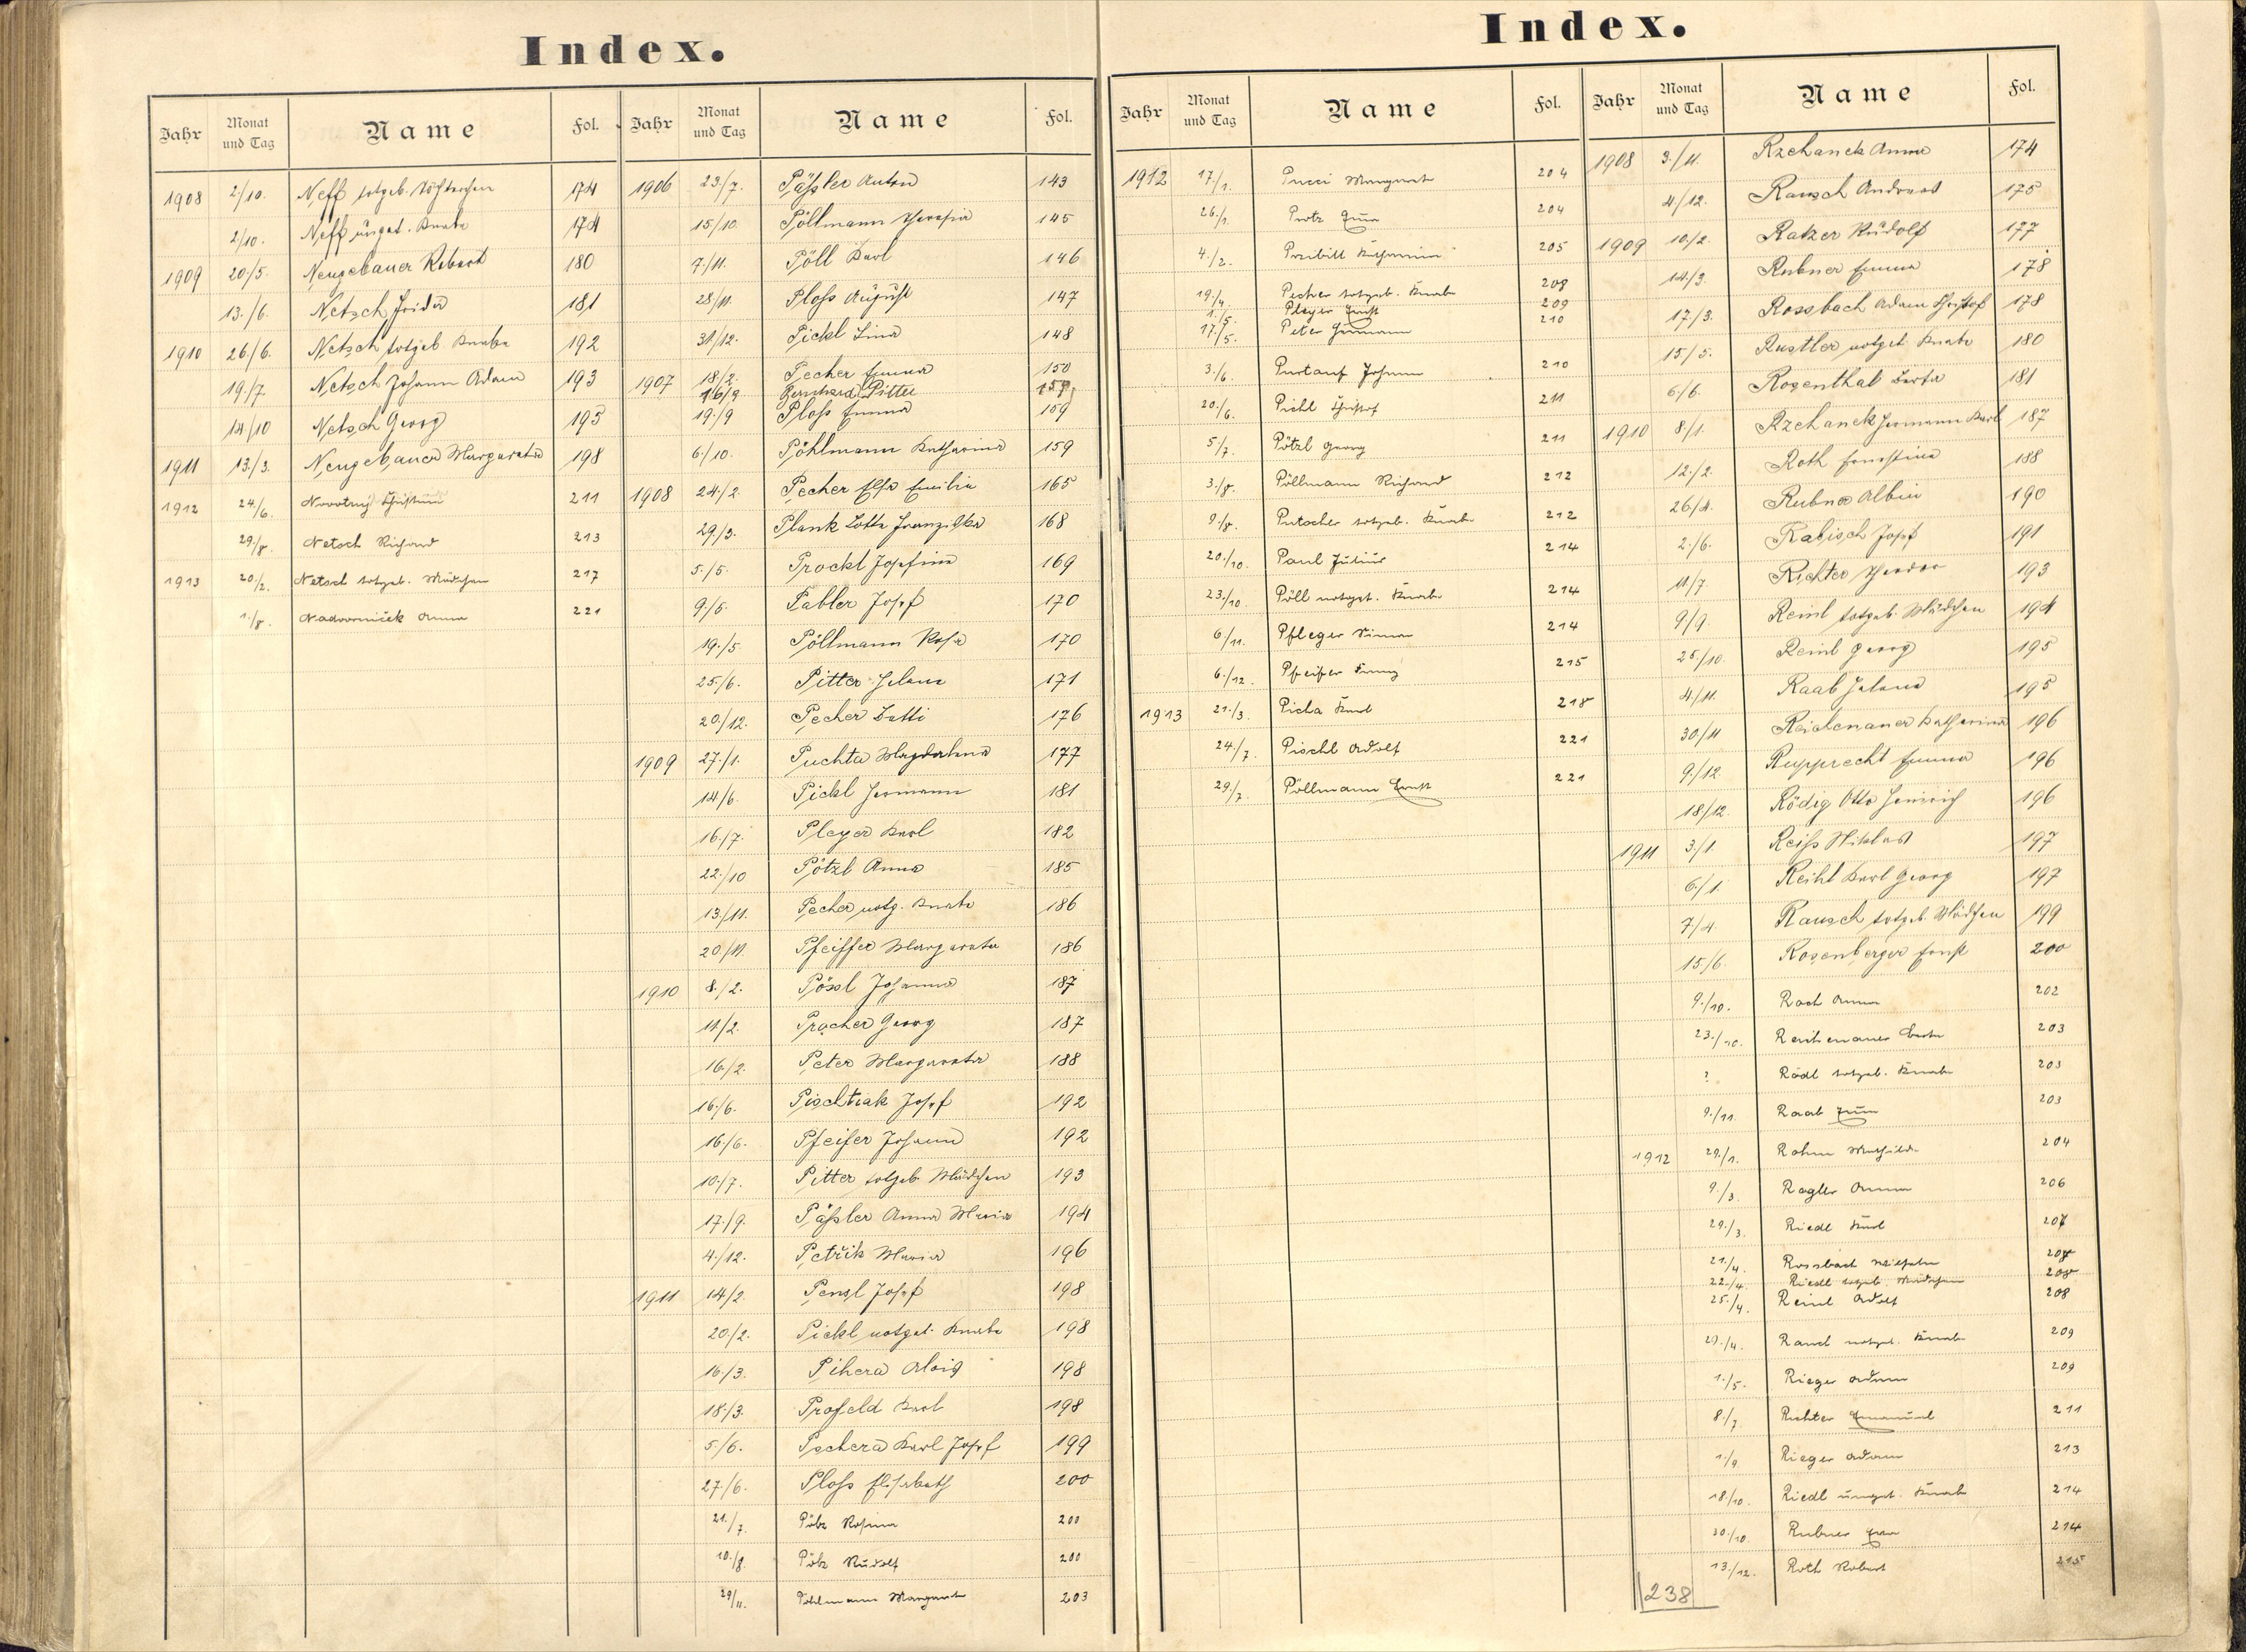 Index.
Jahr Monat und Tag Name Fol. Jahr Monat und Tag Name Fol.
1908 2/10. Neff totgeb. 174
2/10. Neff Knabe 174
1909 20./5. Neugebauer Robert 180
13./6. Netsch Frida 181
1910 26./6. Netsch totgeb Knabe 192
19./7. Netsch Johann Adam 193
14/10 Netsch Georg 195
1911 13./3. Neugebauer Margareta 198
1912 24./6. Novotny 211
29./8. Netsch Richard 213
1913 20./2. Netsch totgeb. Mädchen 217
1./8. Nadvorniček Anna 221
1906 23./7. Päßler Anton 143
15/10. Pöllmann Theresia 145
7./11. Pöll Karl 146
28/11. Ploß August 147
31./12. Pickl Lina 148
1907 18/2. Pecher Emma 150
16/9 Bernhard Pitter
19./9 Ploß Emma 159
6./10. Pöhlmann Katharina 159
1908 24./2. Pecher Elsa Emilia 165
29./3. Plank Lotte Franziska 168
5./5. Prockl Josefina 169
9./5. Pabler Josef 170
19./5. Pöllmann Rosa 170
25./6. Pitter Helene 171
20./12. Pecher Betti 176
1909 27./1. Puchta Magdalena 177
14/6. Pickl Hermann 181
16./7. Pleyer Karl 182
22./10 Pötzl Anna 185
13./11. Pecher notg. Knabe 186
20./11. Pfeiffer Margareta 186
1910 8./2. Pössl Johanna 187
11/2. Pracher Georg 187
16./2. Peter Margareta 188
16./6. Pischtiak Josef 192
16./6. Pfeifer Johann 192
10./7. Pitter totgeb. Mädchen 193
17./9. Päßler Anna Maria 194
4./12. Petřik Maria 196
1911 14/2. Pensl Josef 198
20./2. Pickl notget. Knabe 198
16./3. Pihera Alois 198
18./3. Profeld Karl 198
5./6. Pschera Karl Josef 199
27./6. Ploß Elisabeth 200
21./7. Pölz Rosina 200
10./8. Pölz Rudolf 200
29/11. Pöhlmann Margareta 203
Index.
Jahr Monat und Tag Name Fol. Jahr Monat und Tag Name Fol.
1912 17./1. Pucci Margareta 204
26./1. Protz 204
4./2. Przibill Katharina 205
19./4. Pecher totgeb. Knabe 208
1./5. Pleyer Ernst 209
17./5. Peter Hermann 210
3./6. Purtauf Johann 210
20./6. Pichl Christof 211
5./7. Pötzl Georg 211
3./8. Pöllmann Richard 212
9./8. Putscher totgeb. Knabe 212
20./10. Paul Julius 214
23./10. Pöll notget. Knabe 214
6./11. Pfleger Simon 214
6./12. Pfeifer Franz 215
1913 21./3. Picha Karl 218
24./7. Pischl Adolf 221
29./7. Pöllmann Ernst 221
1908 3./11. Rzehanek Anna 174
4/12. Rausch Andreas 175
1909 10/2. Ratzer Rudolf 177
14./3. Rubner Emma 178
17./3. Rossbach Adam Christof 178
15/5. Rustler notget. Knabe 180
6./6. Rosenthal Berta 181
1910 8/1. Rzehanek Hermann Karl 187
12./2. Roth Ernestine 188
26./4. Rubner Albin 190
2./6. Rabisch Josef 191
11/7 Richter Theodor 193
9/9. Reinl totgeb. Mädchen 194
25./10. Reinl Georg 195
4./11. Raab Helene 195
30./11 Reichenauer Katharina 196
9./12 Rupprecht Emma 196
18/12. Rödig Otto Heinrich 196
1911 3/1. Reiß Niklas 197
6./1. Reihl Karl Georg 197
7/4. Rausch totgeb. Mädchen 199
15/6. Rosenberger Ernst 200
9./10. Anna 202
23./10. Reichenauer Berta 203
? Rödl totgeb. Knabe 203
9./11. Raab 203
1912 29./1. Rahm Mathilde 204
9./3. Ragler Anna 206
29./3. Riedl Karl 207
21./4. Rossbach Wilhelm 208
22./4. Riedl totgeb. Mädchen 208
25./4. Reinl Adolf 208
29./4. notget. Knabe 209
1./5. Rieger Adam 209
8./7. Richter Emanuel 211
1./9. Rieger Adam 213
18./10. Riedl Knabe 214
20./10. Rubner 214
13./12. Roth Robert 215
238